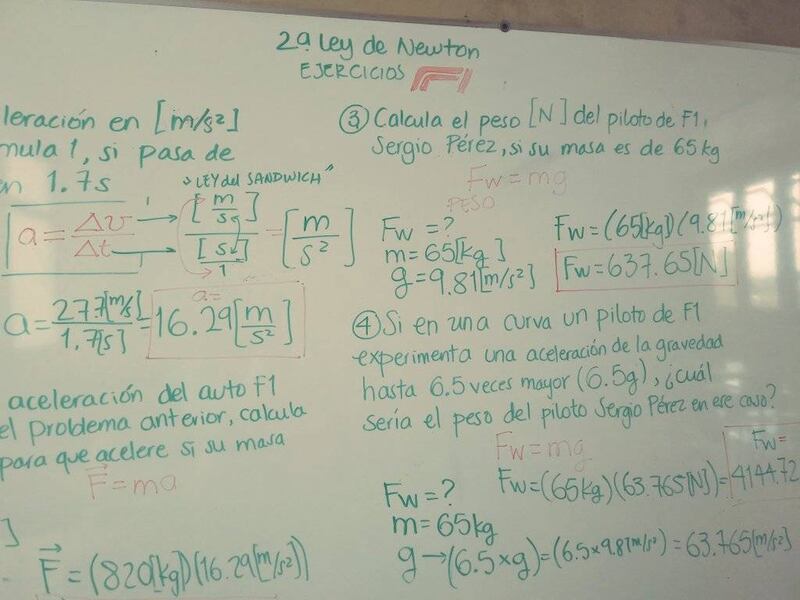 2ª Ley de Newton
EJERCICIOS F1
leración en [m/s²]
mula 1, si pasa de
en 1.7s
"LEY del SANDWICH"
a = Δv / Δt → [m/s] / [s] = [m/s²]
1
1
a = 27.7[m/s] / 1.7[s] = 16.29[m/s²]
a=
aceleración del auto F1
el problema anterior, calcula
para que acelere si su masa
F⃗ = ma
]
F⃗ = (820[kg])(16.29[m/s²])
③ Calcula el peso [N] del piloto de F1,
Sergio Pérez, si su masa es de 65kg
Fw = mg
PESO
Fw = ?
m = 65[kg]
g = 9.81[m/s²]
Fw = (65[kg])(9.81[m/s²])
Fw = 637.65[N]
④ Si en una curva un piloto de F1
experimenta una aceleración de la gravedad
hasta 6.5 veces mayor (6.5g), ¿cuál
sería el peso del piloto Sergio Pérez en ese caso?
Fw = mg
Fw = (65kg)(63.765[N]) =
Fw =
4144.72
Fw = ?
m = 65kg
g → (6.5 × g) = (6.5 × 9.81m/s²) = 63.765[m/s²]